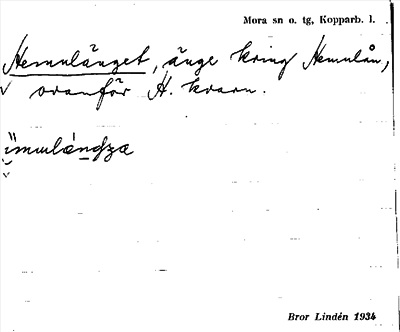 Mora sn o. tg, Kopparb. l.
Hemulänget, änge kring Hemulån,
v ovanför H. kvarn.
Bror Lindén 1934